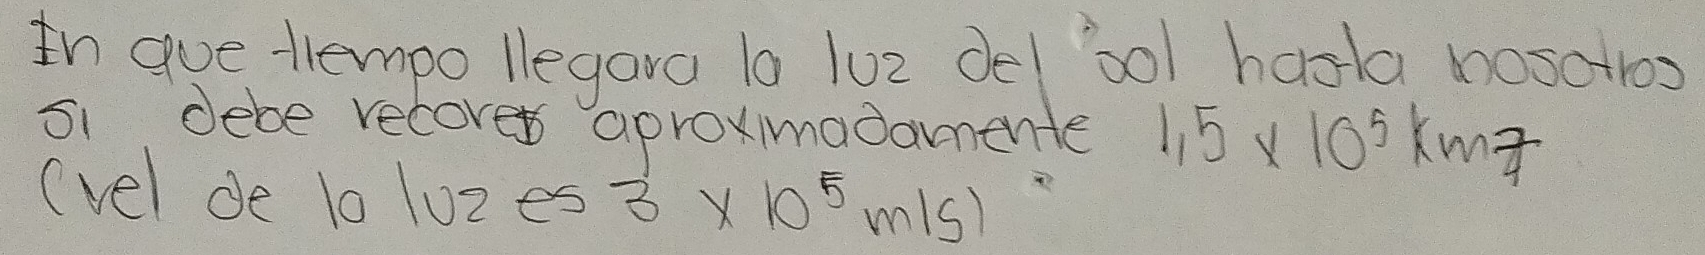 In que tiempo llegara la luz del sol hasta nosotros
si debe recorer aproximadamente 1,5 x 10⁵ Km
(vel de la luz es 3 x 10⁵ m/s)